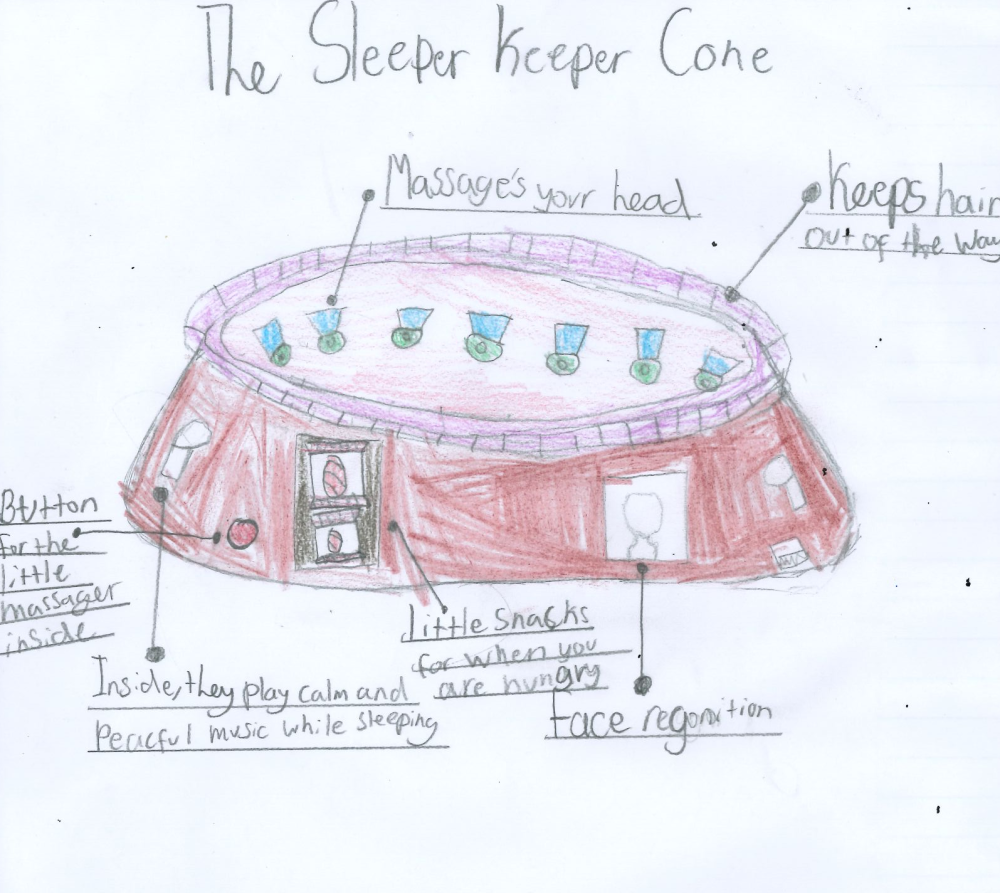 The Sleeper Keeper Cone
Massage's your head
Keeps hair
out of the way
Button
for the
little
massager
inside
Little Snacks
for when you
are hungry
Inside, they play calm and
Peracful music while sleeping
face regonition